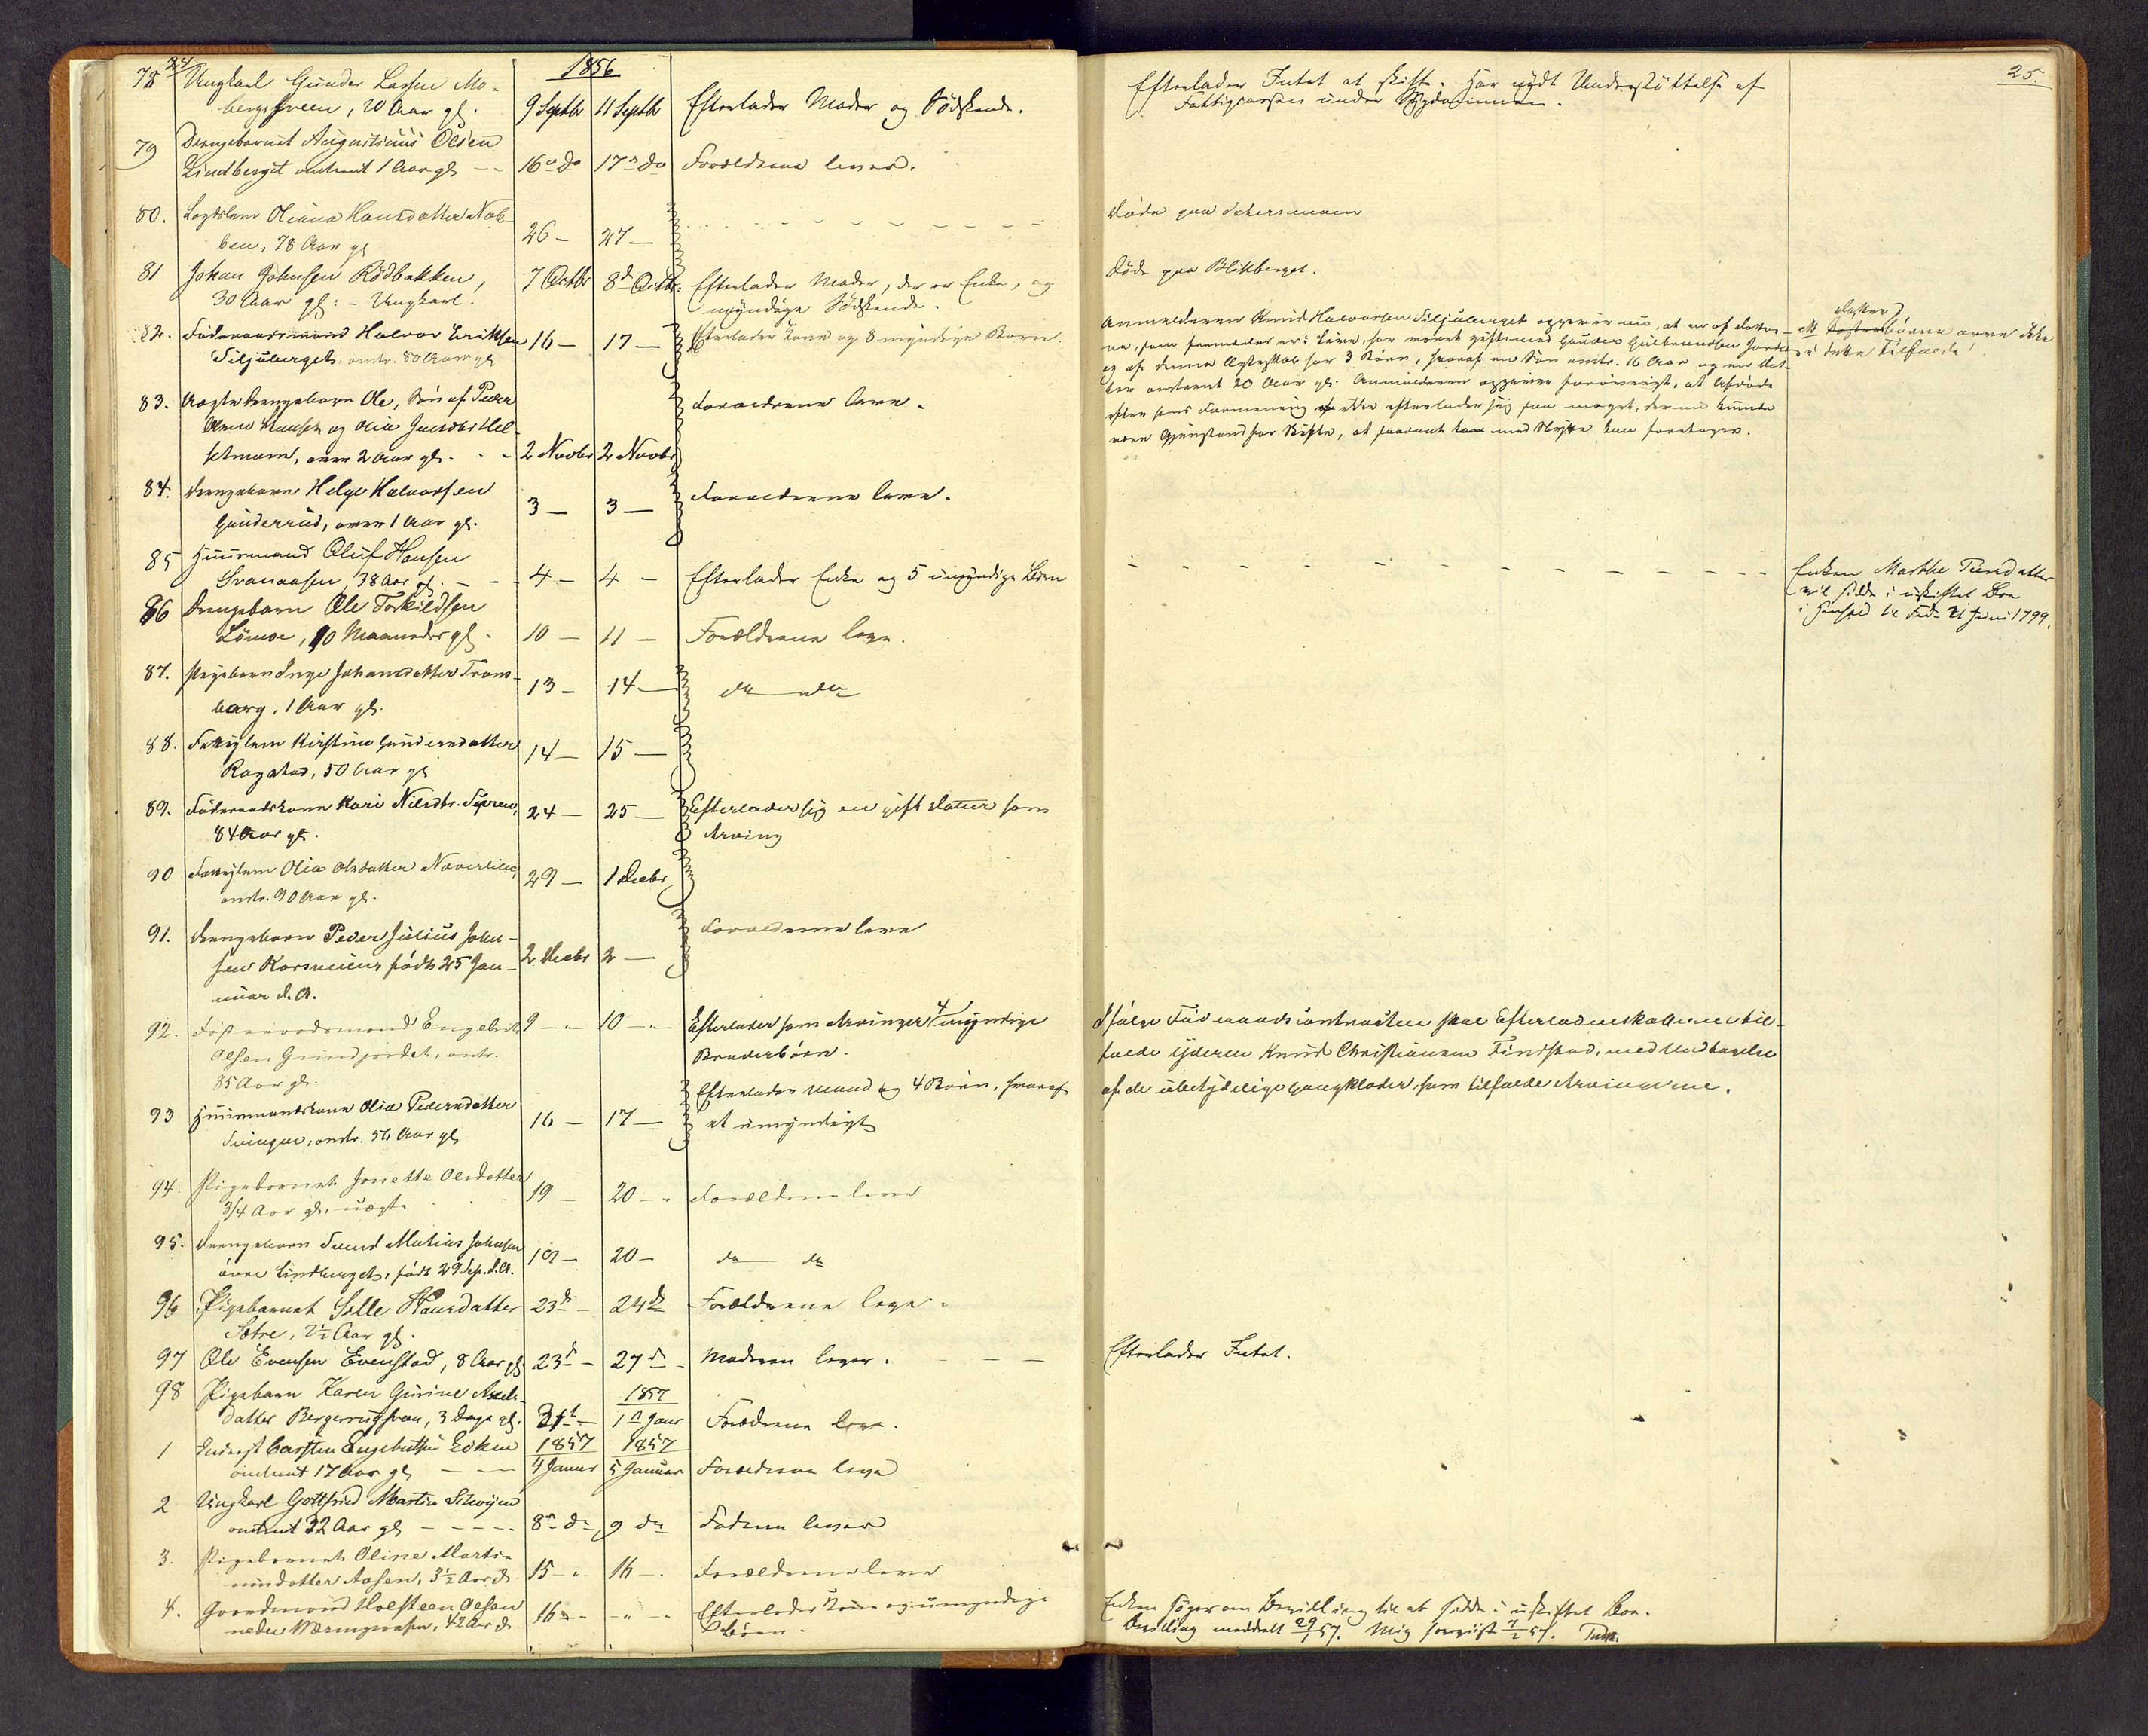 24
1856
78 Ungkarl Gunder Larsen Mo-
bergshveen, 20 Aar gl. 9 Septbr 11 Septbr Efterlader Moder og Södskende.
79 Drengebarnet Augustinus Olsen
Lindberget omtrent 1 Aar gl 16 do 17 do Forældrene lever.
80. Lægdslem Oliana Hansdatter Nab-
ben, 78 Aar gl 26 — 27 —
81 Johan Johnsen Rödbakken, 7 Octbr 8de Octbr. Efterlader Moder, der er Enke, og
30 Aar gl: - Ungkarl. myndige Södskende.
82. Föderaadsmand Halvor Eriksen 16 — 17 — Efterlader Kone og 8 myndige Børn.
Siljuberget, omtr. 80 Aar gl
83. Uægte Drengebarn Ole, Sön af Peder Forældrene leve.
Olsen og Olia Hel-
setmoen, over 2 Aar gl. 2 Novbr 2 Novbr
84. Drengebarn Helge Halvorsen 3 — 3 — Forældrene leve.
Gunderrud, over 1 Aar gl.
85 Huusmand Oluf Hansen
Svenaasen, 38 Aar gl. 4 — 4 — Efterlader Enke og 5 umyndige Börn
86 Drengebarn Ole Torkildsen
Lömoe, 10 Maaneder gl. 10 — 11 — Forældrene leve.
87. Pigebarn Inge Johansdatter Trons-
berg, 1 Aar gl. 13 — 14 — do do
88. Fattiglem Kirstine Gundersdatter 14 — 15 —
Rogstad, 50 Aar gl
89. Föderaadskone Kari Nilsdtr. 24 — 25 — Efterlader sig en gift Datter som
84 Aar gl. Arving
90 Fattiglem Olia Olsdatter Næverlien, 29 — 1 Decbr
omtr. 90 Aar gl.
91. Drengebarn Peder Julius John- Forældrene leve
sen födt 25 Jan- 2 Decbr 2 —
uar d. A.
92. Föderaadsmand Engebret 9 — 10 — Efterlader som Arvinger 4 myndige
Olsen Grindjordet, omtr. Broderbörn.
85 Aar gl.
93 Huusmandskone Olia Pedersdatter 16 — 17 — Efterlader Mand og 4 Börn, hvoraf
omtr. 56 Aar gl et umyndigt
94. Pigebarnet Jonette Olsdatter 19 — 20 — Forældrene leve
3/4 Aar gl. uægte
95. Drengebarn Svend Mathias Johnsen 19 — 20 — do do
övre Lindberget, födt 29 Sep. d. A.
96 Pigebarnet Hansdatter 23de — 24de Forældrene leve.
Sætre, 2½ Aar gl.
97 Ole Evensen Evenstad, 8 Aar gl 23de — 27de — Moderen lever.
98 Pigebarn Karen Gurine Axels- 1857
datter Bergerrudsveen, 3 Dage gl. 31te — 1ste Januar Forældrene leve.
1 Inderst Carsten Engebretsen Eoken 1857 1857
omtrent 17 Aar gl 4 Januar 5 Januar Forældrene leve
2 Ungkarl Gottfried Martin
omtrent 32 Aar gl 8de do 9 do Faderen lever
3. Pigebarnet Oline Marti-
nusdatter Aasen, 3½ Aar gl. 15 16 Forældrene leve
4. Gaardmand Holsteen Olsen 16 Efterlader Kone og umyndige
nedre 42 Aar gl Börn.
25.
Efterlader Intet at skifte. Har nydt Understöttelse af
Fattigcassen under Sygdommen.
Døde paa Setersmoen
Døde paa Blikberget.
Anmelderen Knud Halvorsen Siljuberget opgiver nu, at en af Döttre-
ne, som formeldes er i Live, har været gift med Gunder Guldbrandsen
og af denne Ægteskab har 3 Börn, hvoraf en Sön omtr. 16 Aar og en Dat-
ter omtrent 20 Aar gl. Anmelderen opgiver forövrigt, at Afdöde
efter hans Formening ikke efterlader sig saa meget, der nu kunde
være Gjenstand for Skifte, at saadant med Nytte kan foretages.
Datter
börn arver ikke
i dette Tilfælde!
Enken Marthe
vil sidde i uskiftet Boe
i Henhold til Frd. 21 Juni 1799.
Ifölge Föderaadscontracten skal Efterladenskaberne til-
falde Yderen Knud Christiansen Findstad, med Undtagelse
af de ubetydelige Gangklæder, som tilfalde Arvingerne.
Efterlader Intet.
Enken söger om Bevilling til at sidde i uskiftet Boe.
Bevilling meddelt 29/1 57. Mig foreviist 7/2 57.